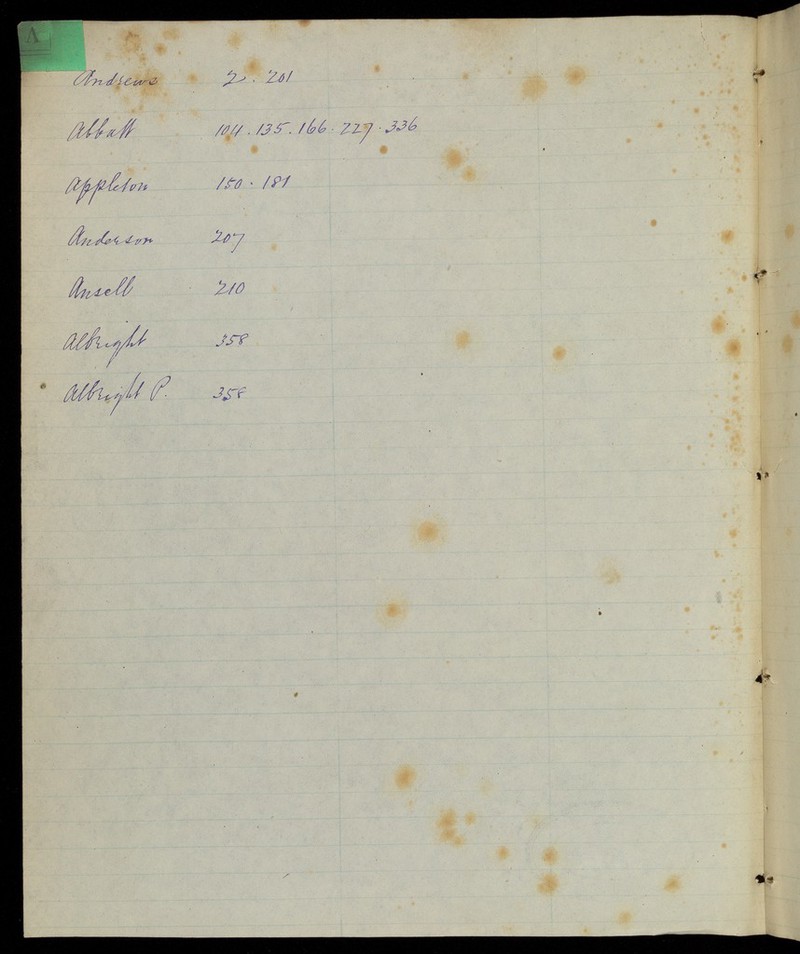 A
Andrews 2. 201
Abbatt 104. 135. 166. 227. 336
Appleton 150. 181
Anderson 207
Ansell 210
Albright 358
Albright P. 358